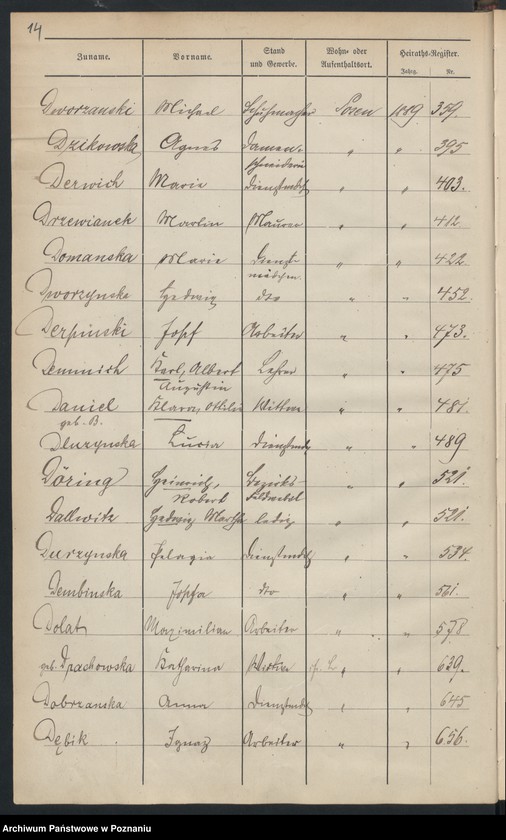 14
Zuname. Vorname. Stand und Gewerbe. Wohn- oder Aufenthaltsort. Heiraths-Register.
Jahrg. Nr.
Dworzanski Michael Schuhmacher Posen 1889 359.
Dzikowska Agnes Damen- " " 395
schneiderin
Derwich Marie Dienstmdch " " 403.
Drzewianek Martin Maurer " " 412
Domanska Marie Dienst- " " 422
mädchen
Dworzynska Hedwig dto " " 452.
Derpinski Josef Arbeiter " " 473.
Demmich Karl, Albert Lehrer " " 475
Augustin
Daniel Klara, Ottilie Wittwe " " 481.
geb. B.
Dluzynska Lucia Dienstmdch " " 489
Döring Heinrich, Bezirks- " " 521.
Robert Feldwebel
Dallwitz Hedwig Martha ledig " " 521.
Durzynska Pelagia Dienstmdch " " 534.
Dembinska Josefa dto " " 561.
Dolat Maximilian Arbeiter " " 578
geb. Katharina Wittwe " " 639.
Dobrzanska Anna Dienstmdch " " 645
Dębik Ignaz Arbeiter " " 656.
Archiwum Państwowe w Poznaniu